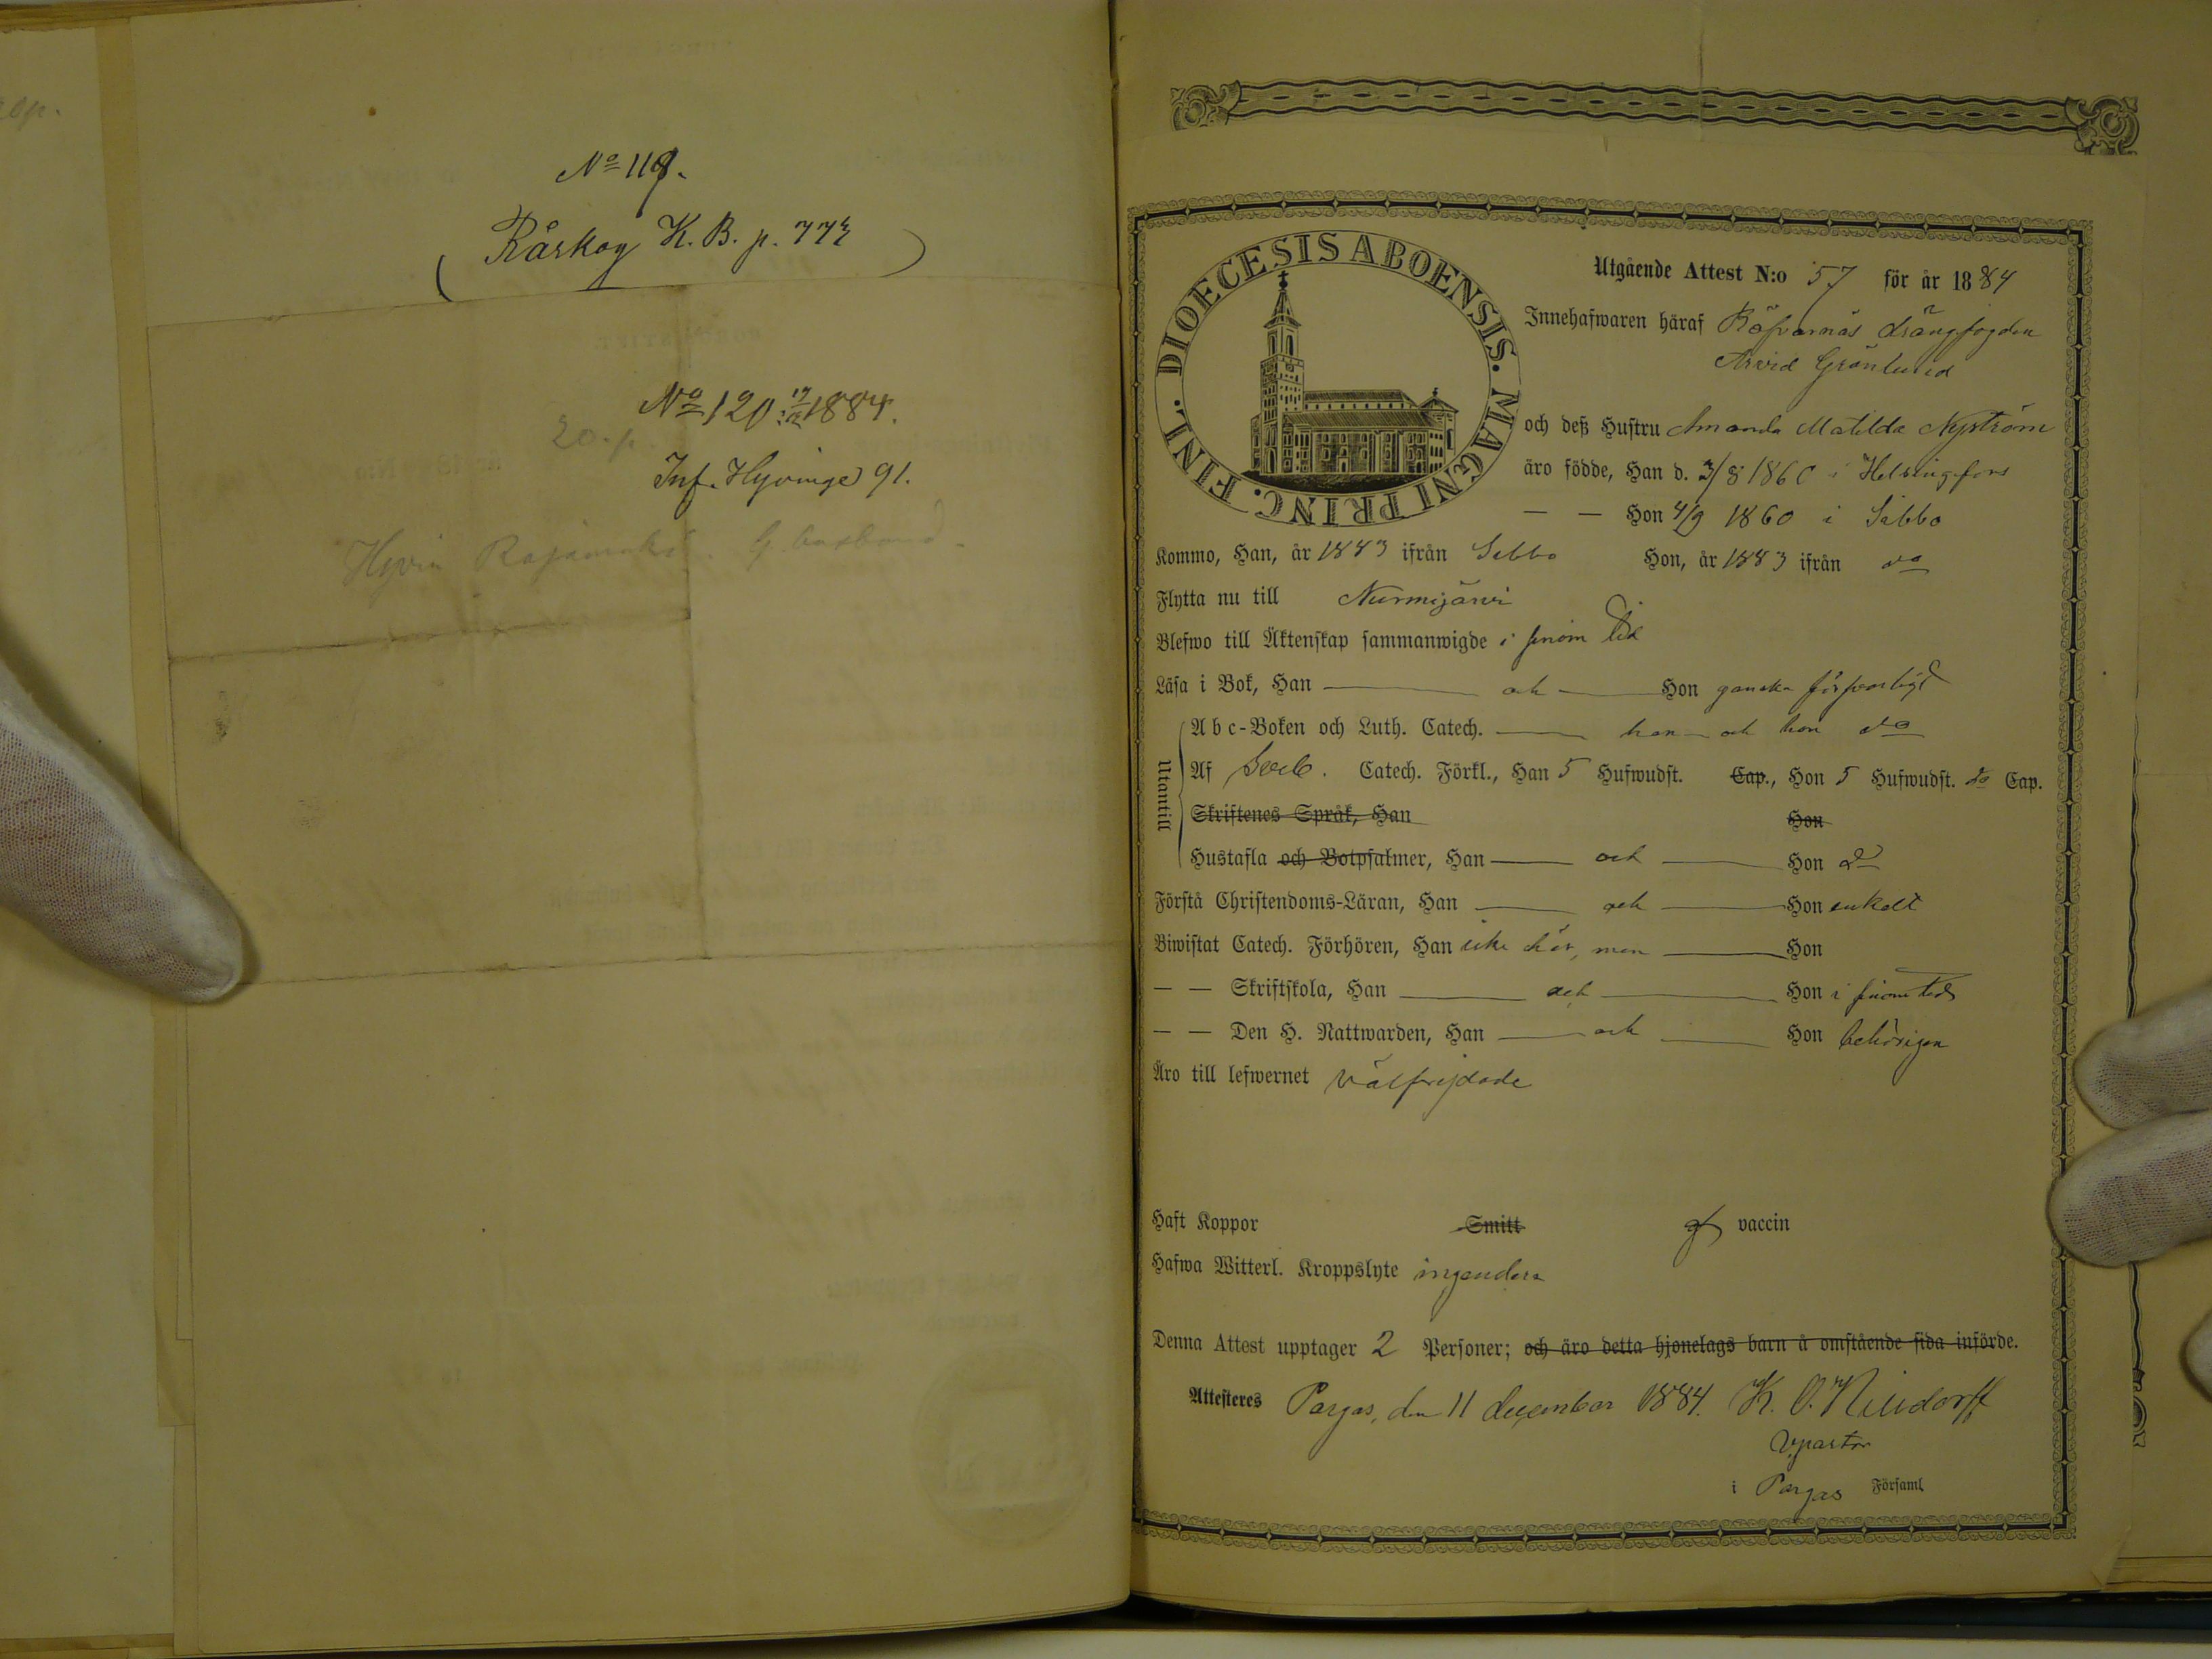 No 119.
Råskog K. B. p. 773
No 120. 17/12 1884.
20. p.
Inf. Hyvinge 91.
Hyvin Rajamäki. G.
DIOECESIS ABOENSIS. MAGNI PRINC. FINL.
Utgående Attest N:o 57 för år 1884
Innehafwaren häraf Röfvarnäs drängfogden
Arvid Grönlund
och deß Hustru Amanda Matilda Nyström
äro födde, Han d. 3/8 1860 i Helsingfors
— — Hon 4/9 1860 i Sibbo
Kommo, Han, år 1883 ifrån Sibbo Hon, år 1883 ifrån do
Flytta nu till Nurmijärvi
Blefwo till Äktenskap sammanwigde i sinom tid
Läsa i Bok, Han — och — Hon ganska försvarligt
Utantill
Abc-Boken och Luth. Catech. — han och hon do
Af Sveb. Catech. Förkl., Han 5 Hufwudst. Cap., Hon 5 Hufwudst. do Cap.
Skriftenes Språk, Han Hon
Hustafla och Botpsalmer, Han — och — Hon do
Förstå Christendoms-Läran, Han — och — Hon enkelt
Biwistat Catech. Förhören, Han icke här, men — Hon
— — Skriftskola, Han — och — Hon i sinom tid
— — Den H. Nattwarden, Han — och — Hon behörigen
Äro till lefwernet välfrejdade
Haft Koppor Smitt af vaccin
Hafwa Witterl. Kroppslyte ingendera
Denna Attest upptager 2 Personer; och äro detta hjonelags barn å omstående sida införde.
Attesteres Pargas, den 11 december 1884. K. O.
V.pastor
i Pargas Församl.